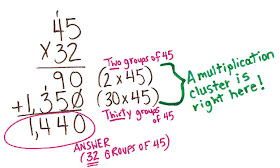 1
45
x 32
Two groups of 45
1
90 (2 x 45)
+1,350 (30 x 45)
Thirty groups of 45
1,440
A multiplication cluster is right here!
ANSWER
(32 GROUPS OF 45)